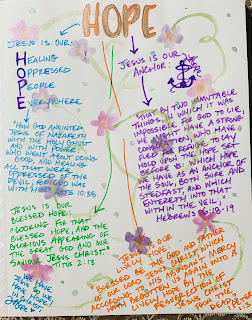 HOPE
JESUS IS OUR:
HEALING
OPPRESSED
PEOPLE
EVERYWHERE
"HOW GOD ANOINTED
JESUS OF NAZARETH
WITH THE HOLY GHOST
AND WITH POWER:
WHO WENT ABOUT DOING
GOOD, AND HEALING
ALL THAT WERE
OPPRESSED OF THE
DEVIL; FOR GOD WAS
WITH HIM." ACTS 10:38
JESUS IS OUR
ANCHOR:
"THAT BY TWO IMMUTABLE
THINGS, IN WHICH IT WAS
IMPOSSIBLE FOR GOD TO LIE,
WE MIGHT HAVE A STRONG
CONSOLATION, WHO HAVE
FLED FOR REFUGE TO LAY
HOLD UPON THE HOPE SET
BEFORE US: WHICH HOPE
WE HAVE AS AN ANCHOR OF
THE SOUL, BOTH SURE AND
STEDFAST, AND WHICH
ENTERETH INTO THAT
WITHIN THE VEIL;"
HEBREWS 6:18-19
JESUS IS OUR
BLESSED HOPE:
"LOOKING FOR THAT
BLESSED HOPE, AND THE
GLORIOUS APPEARING OF
THE GREAT GOD AND OUR
SAVIOUR JESUS CHRIST."
TITUS 2:13
JESUS IS OUR
BLESSED BE THE GOD AND FATHER
OF OUR LORD JESUS CHRIST, WHICH
ACCORDING TO HIS ABUNDANT MERCY
HATH BEGOTTEN US AGAIN UNTO A
LIVELY HOPE BY THE
RESURRECTION OF
JESUS CHRIST
FROM THE DEAD
WE HAVE